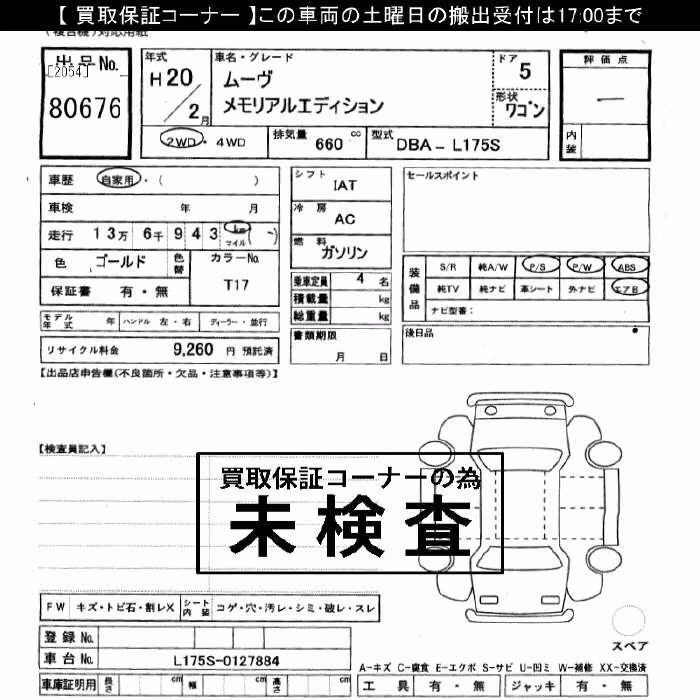 【 買取保証コーナー 】この車両の土曜日の搬出受付は17:00まで
(複合機)対応用紙
出品No.
[2054]
80676
年式
H20/2月
車名・グレード
ムーヴ
メモリアルエディション
ドア
5
形状
ワゴン
2WD・4WD
排気量 660 cc
型式 DBA-L175S
評価点
ー
内装
車歴 自家用・( )
車検 年 月
走行 13万 6千 943 km マイル ( )
色 ゴールド 色替 カラーNo.
保証書 有・無 T17
モデル年式 年 ハンドル 左・右 ディーラー・並行
リサイクル料金 9,260 円 預託済
シフト
IAT
冷房
AC
燃料
ガソリン
乗車定員 4 名
積載量 kg
総重量 kg
書類期限
月 日
セールスポイント
装備品
S/R 純A/W P/S P/W ABS
純TV 純ナビ 革シート 外ナビ エアB
ナビ型番:
後日品
【出品店申告欄(不良箇所・欠品・注意事項等)】
【検査員記入】
買取保証コーナーの為
未検査
FW キズ・トビ石・割レX シート内装 コゲ・穴・汚レ・シミ・破レ・スレ
登録No.
車台No. L175S-0127884
車庫証明用 長さ cm 幅 cm 高さ cm
スペア
A-キズ C-腐食 E-エクボ S-サビ U-凹ミ W-補修 XX-交換済
工具 有・無 ジャッキ 有・無